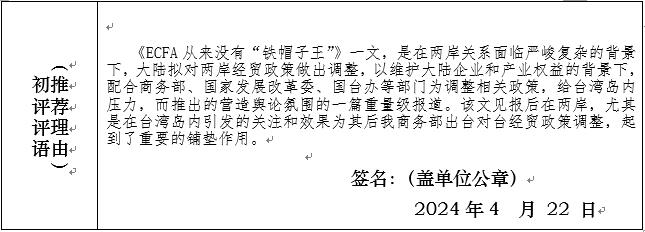 初评评语
(推荐理由)
《ECFA 从来没有“铁帽子王”》一文，是在两岸关系面临严峻复杂的背景
下，大陆拟对两岸经贸政策做出调整，以维护大陆企业和产业权益的背景下，
配合商务部、国家发展改革委、国台办等部门为调整相关政策，给台湾岛内
压力，而推出的营造舆论氛围的一篇重量级报道。该文见报后在两岸，尤其
是在台湾岛内引发的关注和效果为其后我商务部出台对台经贸政策调整，起
到了重要的铺垫作用。
签名：（盖单位公章）
2024 年 4 月 22 日